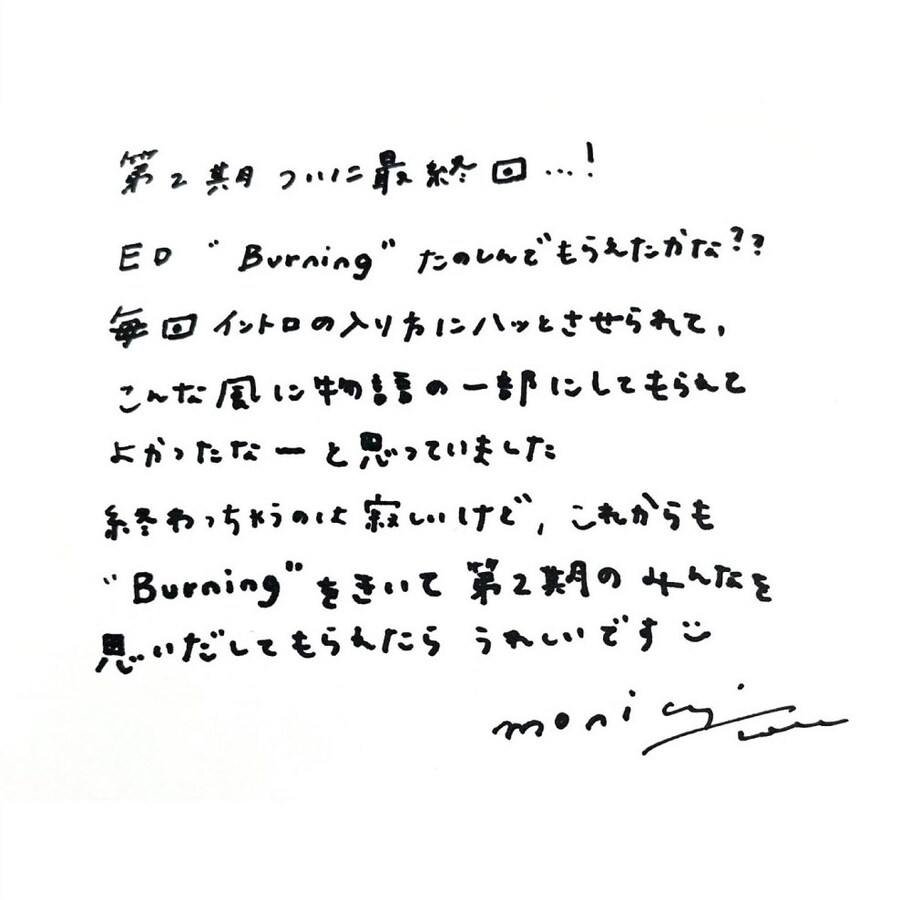 第2期ついに最終回...!
ED “Burning” たのしんでもらえたかな??
毎回イントロの入り方にハッとさせられて,
こんな風に物語の一部にしてもらえて
よかったなーと思っていました
終わっちゃうのは寂しいけど, これからも
“Burning”をきいて 第2期のみんなを
思いだしてもらえたら うれしいです
moni